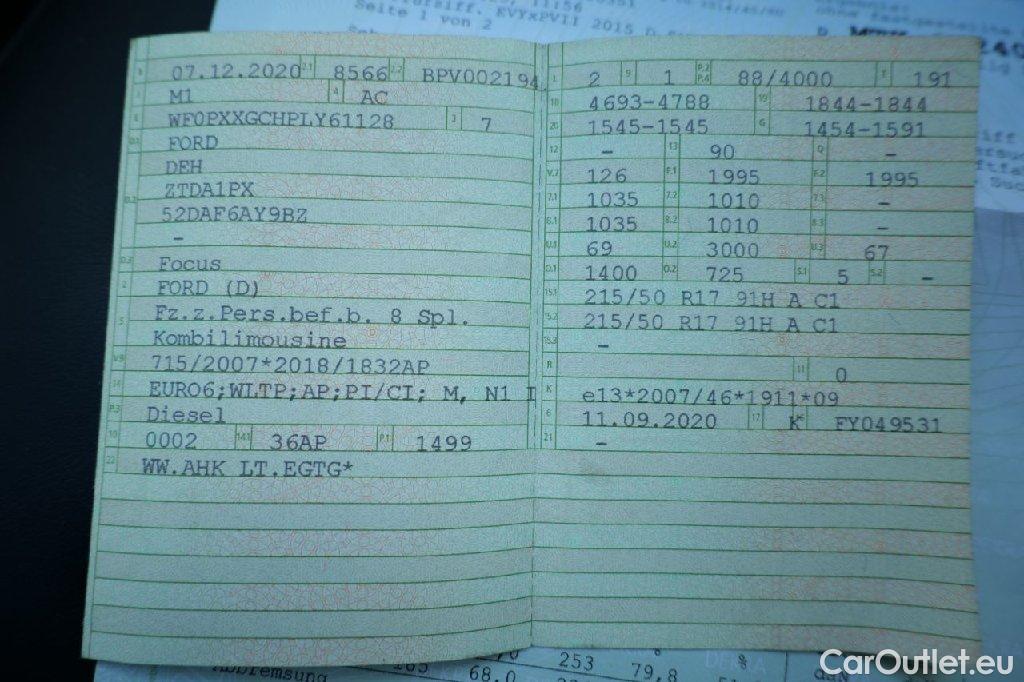 11:56
Seite 1 von 2
EVYxPVII 2015
07.12.2020 2.1 8566 2.2 BPV002194
M1 4 AC
WF0PXXGCHPLY61128 3 7
FORD
DEH
ZTDA1PX
52DAF6AY9BZ
–
Focus
FORD (D)
Fz.z.Pers.bef.b. 8 Spl.
Kombilimousine
715/2007*2018/1832AP
EURO6;WLTP;AP;PI/CI; M, N1 I
Diesel
10 0002 14.1 36AP P.1 1499
22 WW.AHK LT.EGTG*
2 9 1 P.2 P.4 88/4000 T 191
18 4693-4788 19 1844-1844
20 1545-1545 G 1454-1591
12 – 13 90 Q –
V.7 126 F.1 1995 F.2 1995
7.1 1035 7.2 1010 7.3 –
8.1 1035 8.2 1010 8.3 –
U.1 69 U.2 3000 U.3 67
O.1 1400 O.2 725 S.1 5 S.2 –
15.1 215/50 R17 91H A C1
15.2 215/50 R17 91H A C1
15.3 –
R 11 0
K e13*2007/46*1911*09
6 11.09.2020 17 K FY049531
21 –
Abbremsung 68.0 253 79,8 %
CarOutlet.eu